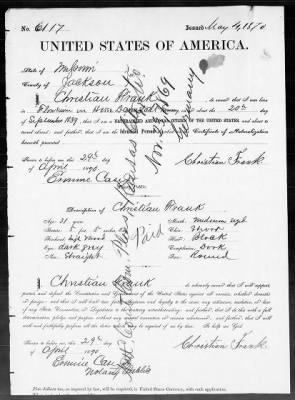 No. 6117 Issued May 4, 1870
UNITED STATES OF AMERICA.
State of Missouri
County of Jackson
I Christian Frank do swear that I was
born in in Hesse Darmstadt Germany on or about the 20th day
of September 1839; that I am a NATURALIZED AND CITIZEN OF THE UNITED STATES, and about to
travel abroad; and further that I am the Identical Person described in the Certificate of Naturalization
herewith presented
Sworn to before me this 29th
day of April 1870
Ermine Case
Christian Frank
Description of Christian Frank
Age: 31 years
Mouth: medium size
Stature: 5 ft 8
Chin: 
Forehead: high
Hair: Black
Eyes: dark grey
Complexion: Dark
Nose: Straight
Face: Round
Paid
Nov. 23 1869
Germany
I, Christian Frank do solemnly swear that I will support
protect and defend the Constitution and Government of the United States against all enemies, whether domestic
or foreign; and that I will bear true faith, allegiance and loyalty to the same, any ordinance, resolution or law
of any State, Convention, or Legislature to the contrary notwithstanding; and further, that I do this with a full
determination, pledge and purpose, without any mental reservation or evasion whatsoever; and further, that I will
well and faithfully perform all the duties which may be required of me by law. So help me God
Sworn to before me, this 29th
day of April 1870
Ermine Case
Notary Public
Christian Frank
Five dollars tax, as imposed by law, will be required, in United States Currency, with each application.